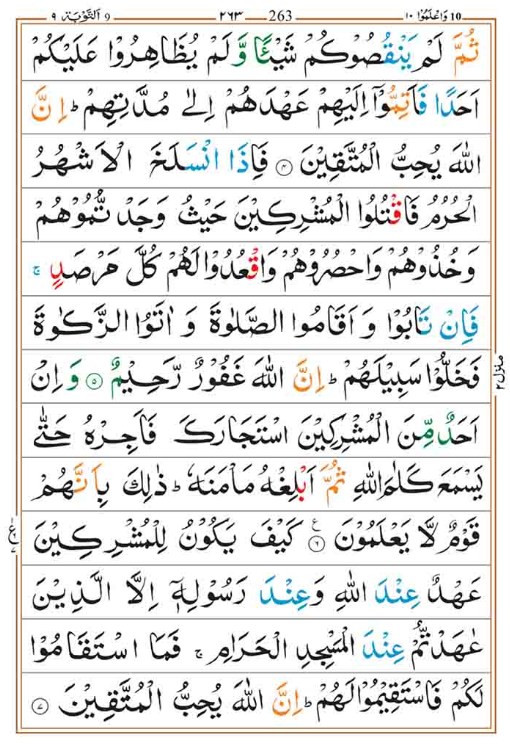 وَاعْلَمُوْۤا ۱۰ 10 263 ۲٦۳ اَلتَّوْبَة ۹ 9
ثُمَّ لَمْ يَنْقُصُوْكُمْ شَيْـًٔا وَّلَمْ يُظَاهِرُوْا عَلَيْكُمْ
اَحَدًا فَاَتِمُّوْۤا اِلَيْهِمْ عَهْدَهُمْ اِلٰى مُدَّتِهِمْ ؕ اِنَّ
اللّٰهَ يُحِبُّ الْمُتَّقِيْنَ ۴ فَاِذَا انْسَلَخَ الْاَشْهُرُ
الْحُرُمُ فَاقْتُلُوا الْمُشْرِكِيْنَ حَيْثُ وَجَدْتُّمُوْهُمْ
وَخُذُوْهُمْ وَاحْصُرُوْهُمْ وَاقْعُدُوْا لَهُمْ كُلَّ مَرْصَدٍ ۚ
فَاِنْ تَابُوْا وَ اَقَامُوا الصَّلٰوةَ وَ اٰتَوُا الزَّكٰوةَ
فَخَلُّوْا سَبِيْلَهُمْ ؕ اِنَّ اللّٰهَ غَفُوْرٌ رَّحِيْمٌ ۵ وَ اِنْ
اَحَدٌ مِّنَ الْمُشْرِكِيْنَ اسْتَجَارَكَ فَاَجِرْهُ حَتّٰى
يَسْمَعَ كَلٰمَ اللّٰهِ ثُمَّ اَبْلِغْهُ مَاْمَنَهٗ ؕ ذٰلِكَ بِاَنَّهُمْ
قَوْمٌ لَّا يَعْلَمُوْنَ ٦ كَيْفَ يَكُوْنُ لِلْمُشْرِكِيْنَ
عَهْدٌ عِنْدَ اللّٰهِ وَعِنْدَ رَسُوْلِهٖۤ اِلَّا الَّذِيْنَ
عٰهَدْتُّمْ عِنْدَ الْمَسْجِدِ الْحَرَامِ ۚ فَمَا اسْتَقَامُوْا
لَكُمْ فَاسْتَقِيْمُوْا لَهُمْ ؕ اِنَّ اللّٰهَ يُحِبُّ الْمُتَّقِيْنَ ۷
منزل ۲